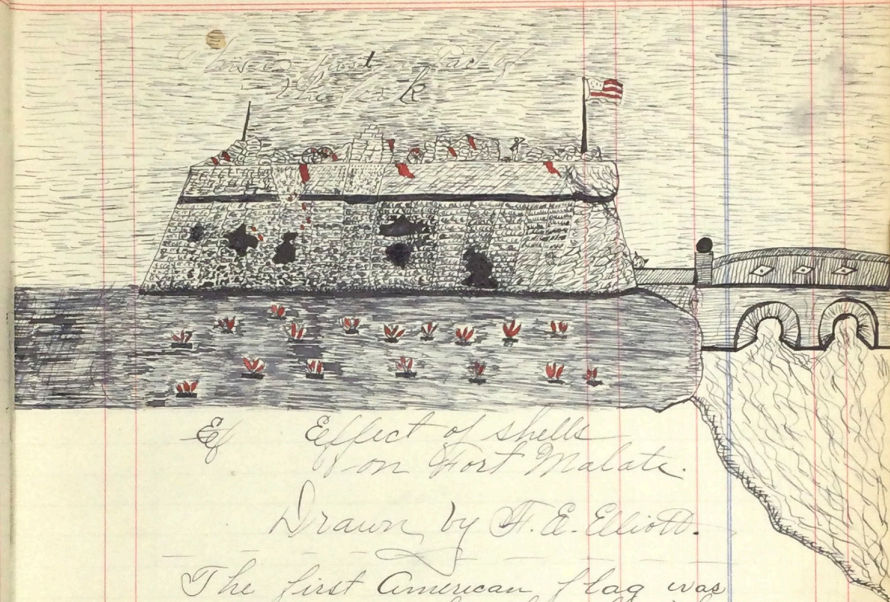 Ef Effect of shells
on Fort Malate.
Drawn by F. E. Elliott.
The first American flag was